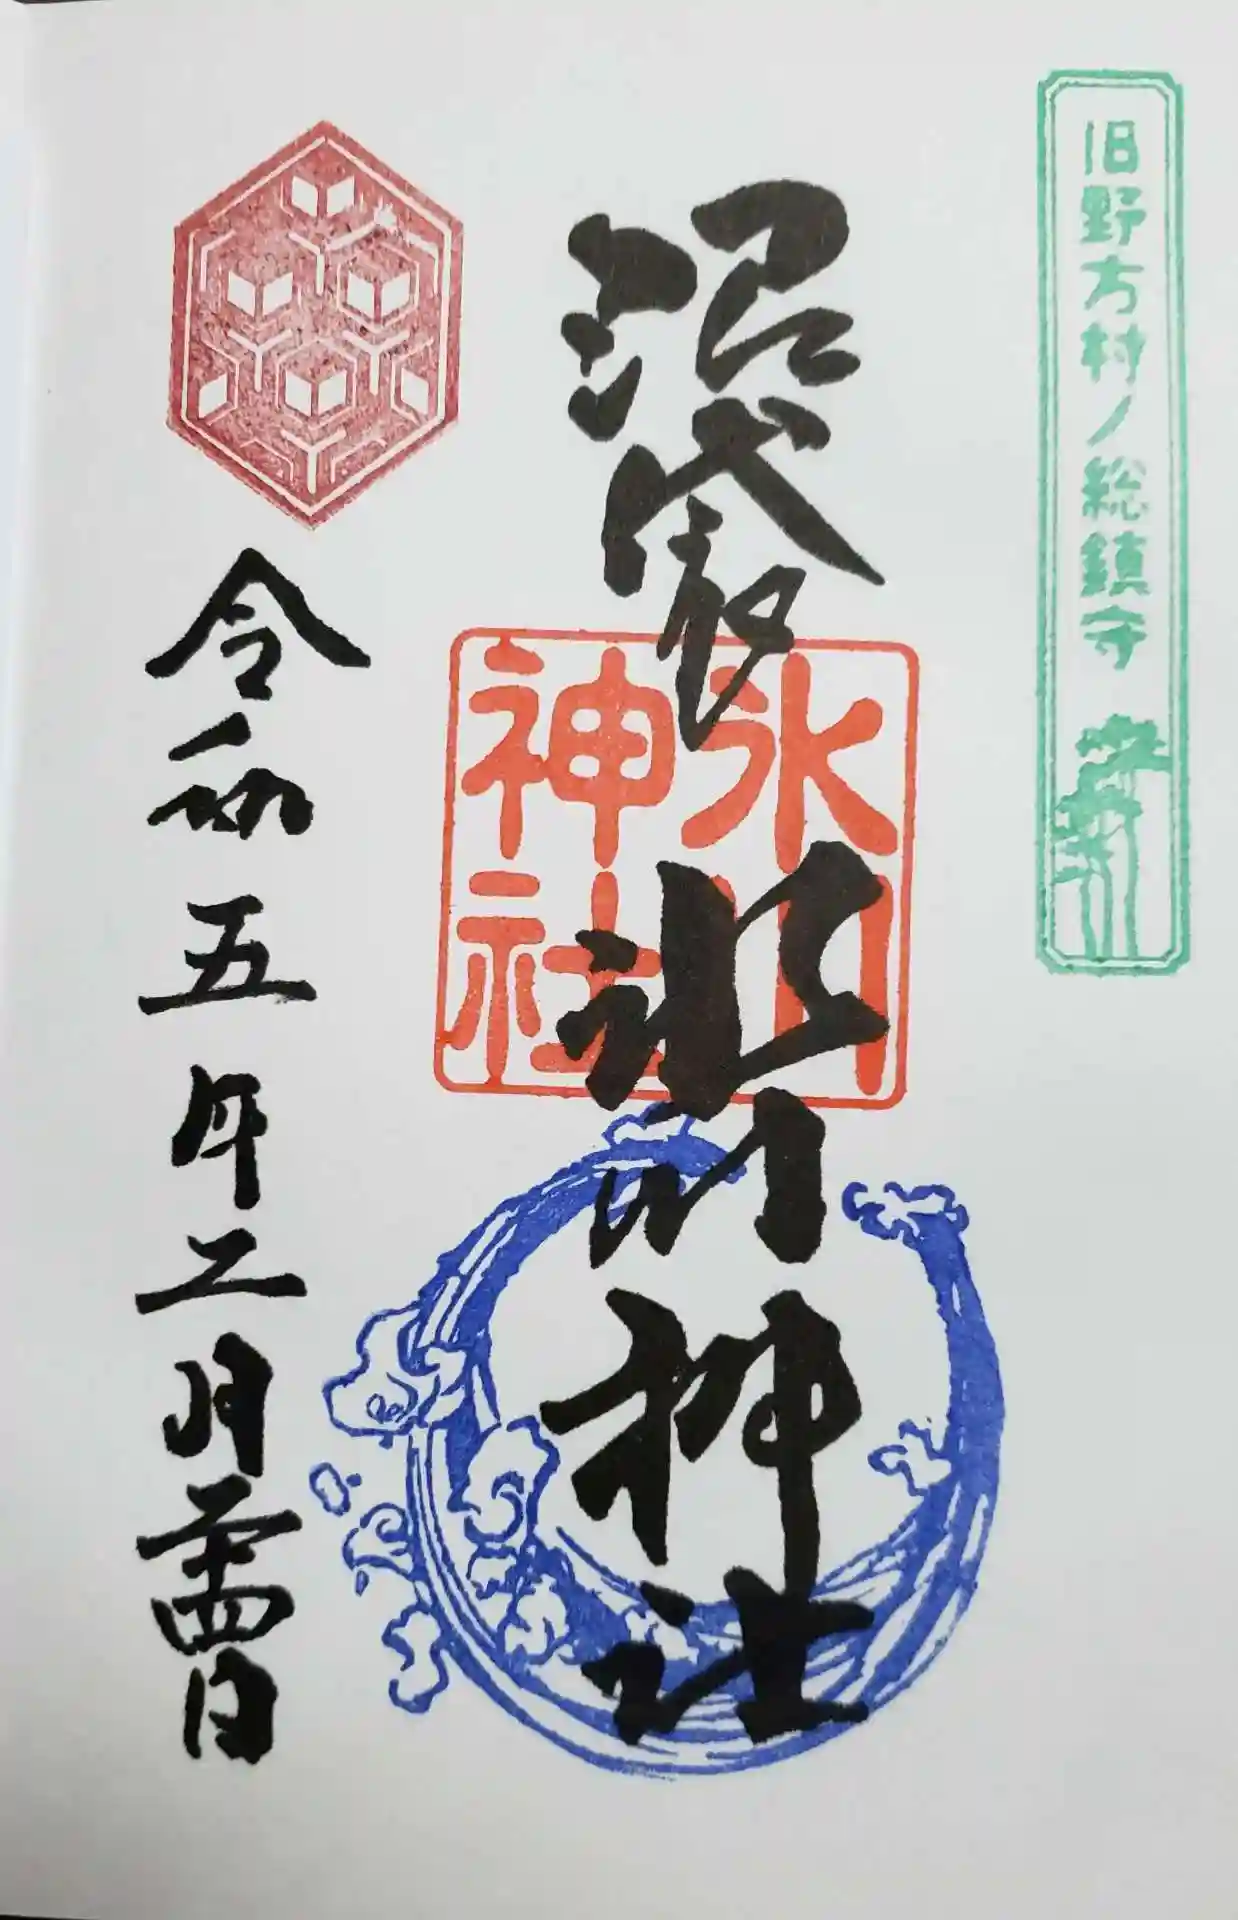 旧野方村ノ総鎮守
沼袋氷川神社
氷川
神社
令和五年二月二十四日